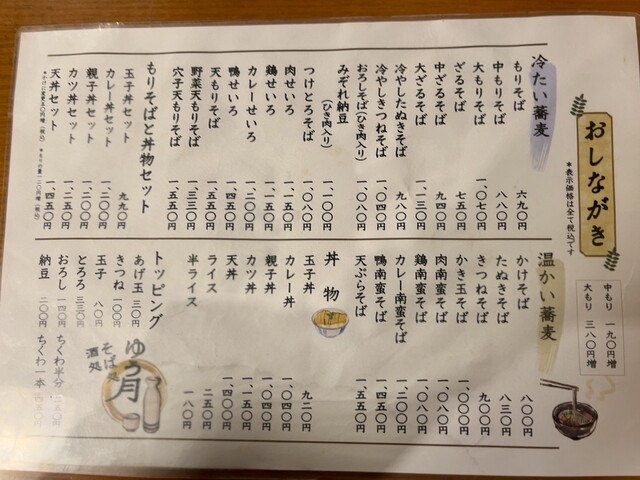 おしながき
＊表示価格は全て税込です
中もり 一九〇円増
大もり 三八〇円増
冷たい蕎麦
もりそば 六九〇円
中もりそば 八八〇円
大もりそば 一、〇七〇円
ざるそば 七五〇円
中ざるそば 九四〇円
大ざるそば 一、一三〇円
冷やしたぬきそば 九八〇円
冷やしきつねそば 一、〇四〇円
おろしそば(ひき肉入り) 一、〇八〇円
みぞれ納豆(ひき肉入り) 一、一〇〇円
つけとろそば 一、〇八〇円
肉せいろ 一、一五〇円
鶏せいろ 一、一五〇円
カレーせいろ 一、二〇〇円
鴨せいろ 一、四五〇円
天もりそば 一、五五〇円
野菜天もりそば 一、三三〇円
穴子天もりそば 一、五五〇円
もりそばと丼物セット
玉子丼セット 九九〇円
カレー丼セット 一、二〇〇円
親子丼セット 一、二〇〇円
カツ丼セット 一、二五〇円
天丼セット 一、四五〇円
温かい蕎麦
かけそば 八〇〇円
たぬきそば 八三〇円
きつねそば 九〇〇円
かき玉そば 一、〇〇〇円
肉南蛮そば 一、〇八〇円
鶏南蛮そば 一、〇八〇円
カレー南蛮そば 一、二〇〇円
鴨南蛮そば 一、四五〇円
天ぷらそば 一、五五〇円
丼物
玉子丼 九二〇円
カレー丼 一、〇四〇円
親子丼 一、〇四〇円
カツ丼 一、一五〇円
天丼 一、四〇〇円
ライス 二五〇円
半ライス 一八〇円
トッピング
あげ玉 三〇円
きつね 一〇〇円
玉子 八〇円
とろろ 三三〇円
おろし 一四〇円
納豆 二〇〇円
ちくわ半分
ちくわ一本
そば処
酒処
ゆう月